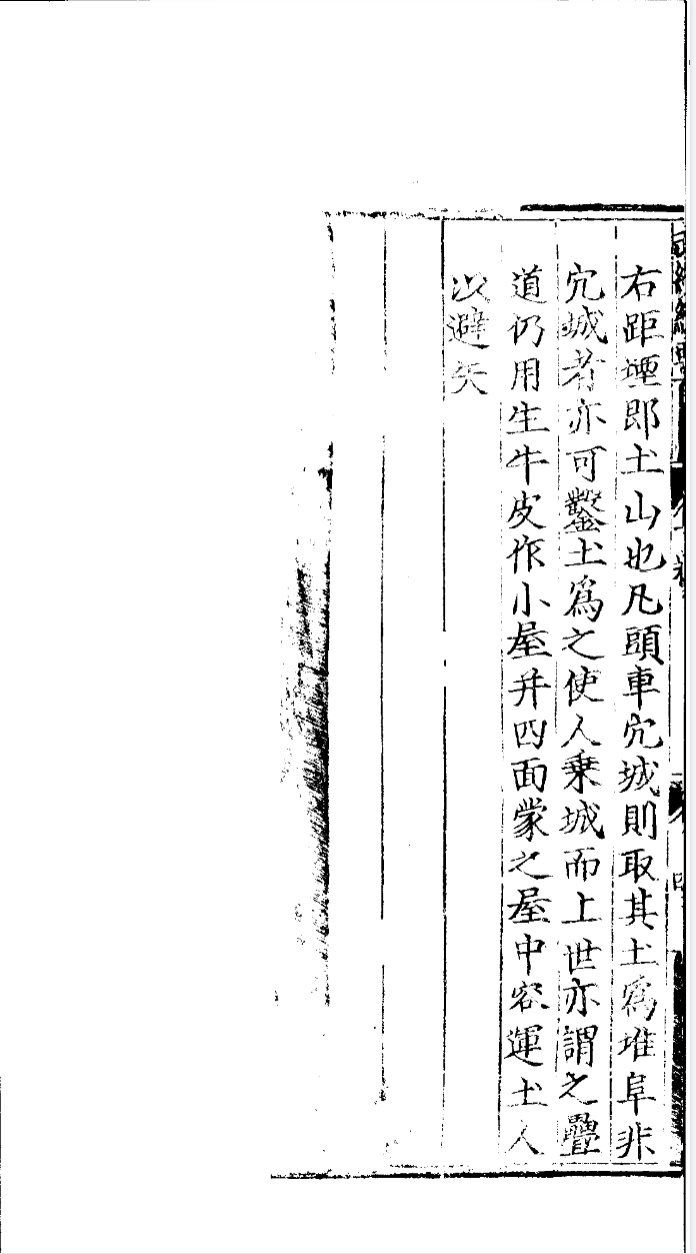 右距堙即土山也凡頭車穴城則取其土爲堆阜非
穴城者亦可鑿土爲之使人乗城而上世亦謂之疊
道仍用生牛皮作小屋并四面蒙之屋中容運土人
以避矢